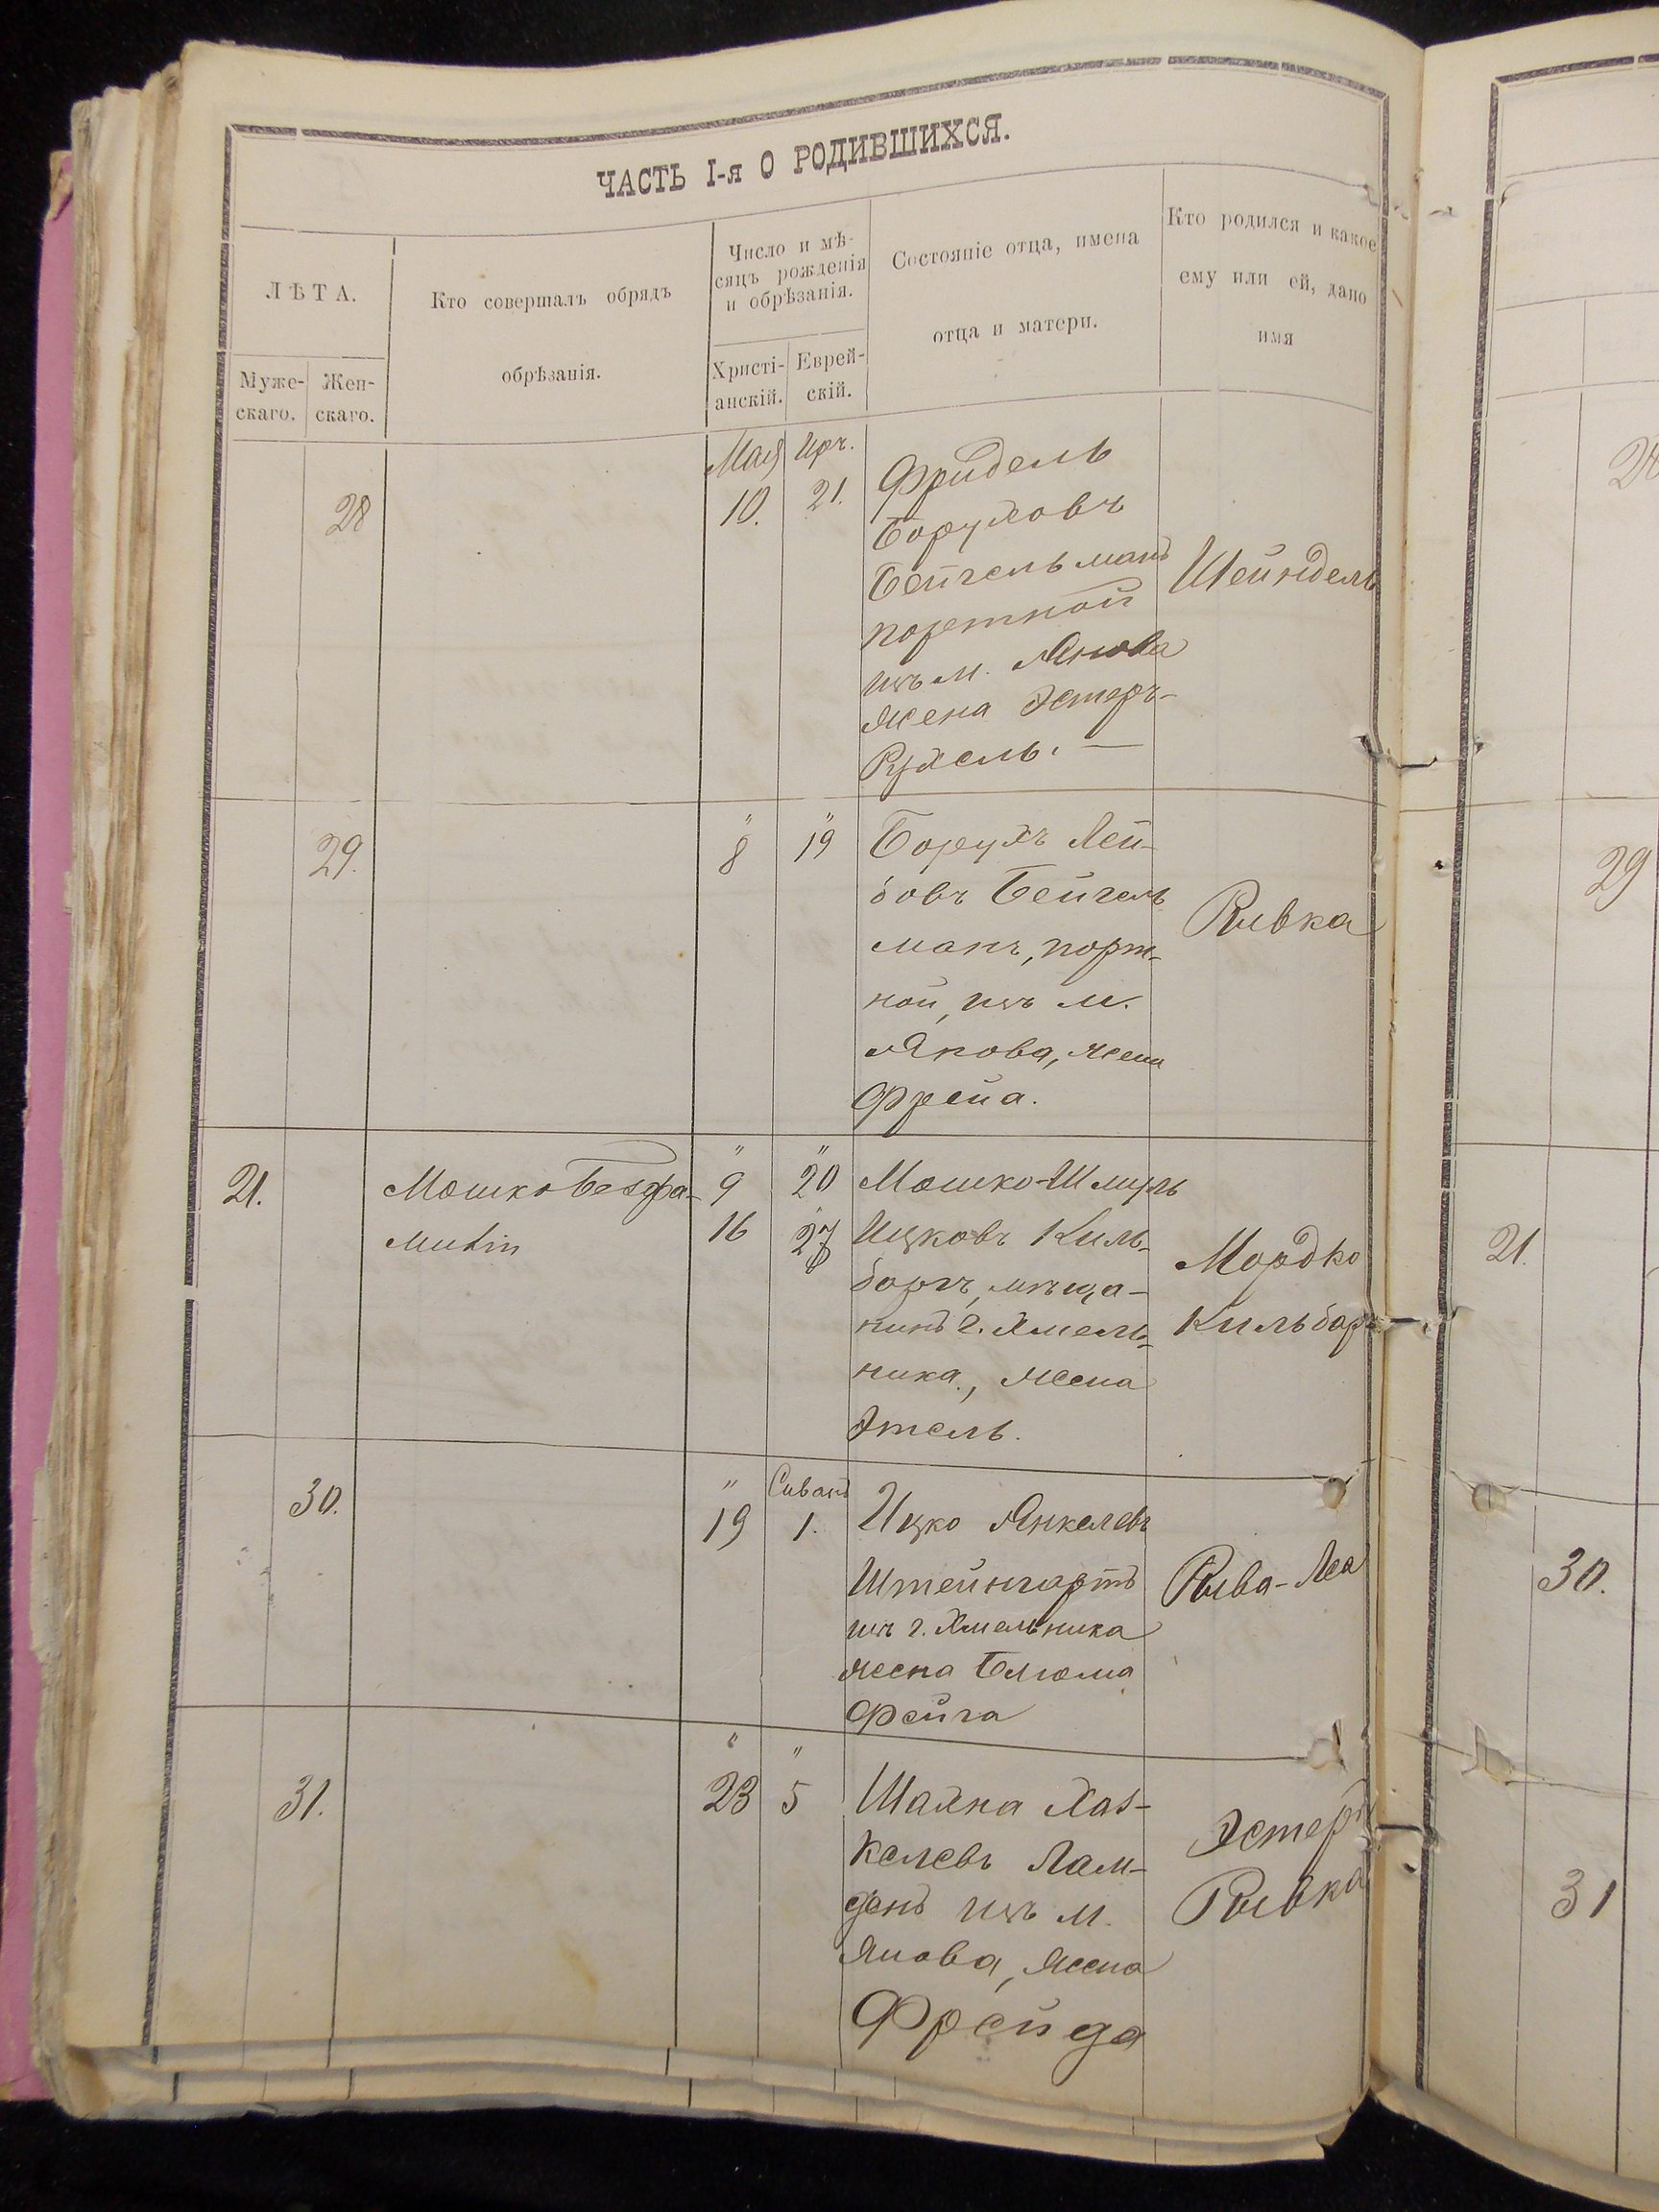 ЧАСТЬ I-я О РОДИВШИХСЯ.
ЛѢТА.
Муже-
скаго.
Жен-
скаго.
Кто совершалъ обрядъ
обрѣзанія.
Число и мѣ-
сяцъ рожденія
и обрѣзанія.
Христі-
анскій.
Еврей-
скій.
Состояніе отца, имена
отца и матери.
Кто родился и какое
ему или ей, дано
имя
28
Мая
10.
Иръ.
21.
Фридель
Боруховъ
Бейгельманъ
портной
изъ м. Янова
жена Эстеръ-
Рухель. —
Шейндель
29.
"
8
"
19
Борухъ Лей-
бовъ Бейгель
манъ, порт-
ной, изъ м.
Янова, жена
Фрейа.
Ривка
21.
Мошко Безфа-
"
9
16
"
20
27
Мошко-Шмуль
Ицковъ Киль-
боръ, мѣща-
нинъ г. Хмель-
ника, жена
Этель.
Мордко
Кильборъ
30.
"
19
Сиванъ
1.
Ицко Янкелевъ
Штейнгартъ
изъ г. Хмельника
жена Блюма
Фейга
Рива-Леа
31.
"
23
"
5
Шахна Хас-
келевъ Лам-
данъ изъ м.
Янова, жена
Фрейда
Эстеръ
Ривка
28
29
21.
30.
31